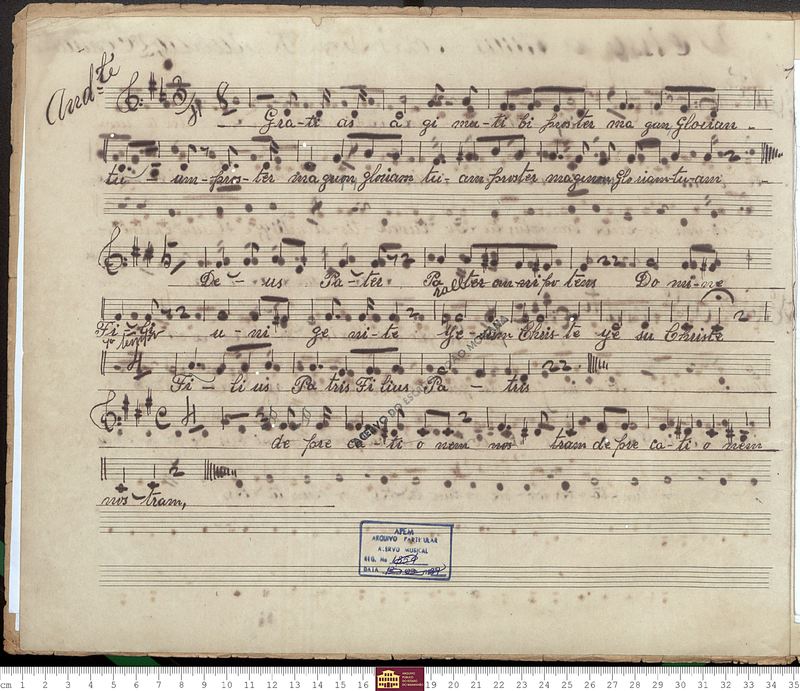 And.te
Gra-ti as a gi mu-ti bi proster ma gun Glorian
tu - am-pros-ter magnun gloriam tu-am proster magnun Gloriam-tu-am
De - us Pa-ter Pa ter om-ni po tens Do mi-ne
rall
Fi - li u - ni ge ni-te Ye-sum Chris te ye su Christe
1º tempo
Fi - li us Pa tris Filius Pa - tris
de pre ca-ti o nem nos tram de pre ca-ti o nem
nos-tram,
APEM
ARQUIVO PARTICULAR
ACERVO MUSICAL
REG. No
DATA
cm 1 2 3 4 5 6 7 8 9 10 11 12 13 14 15 16 19 20 21 22 23 24 25 26 27 28 29 30 31 32 33 34 35